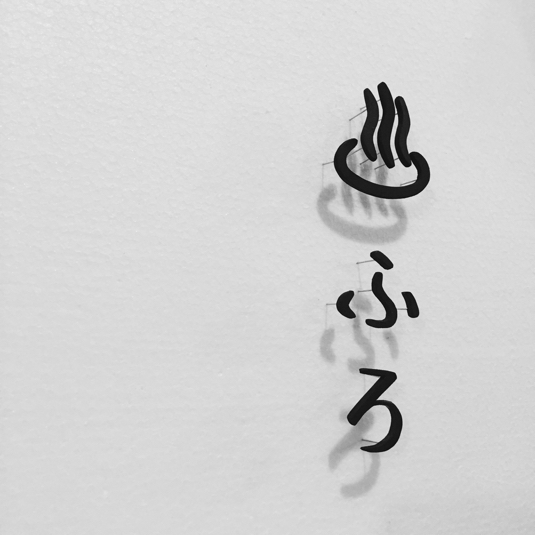 ♨
ふろ